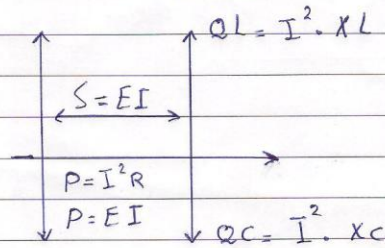 QL = I². XL
S = EI
P = I²R
P = EI
QC = I². XC